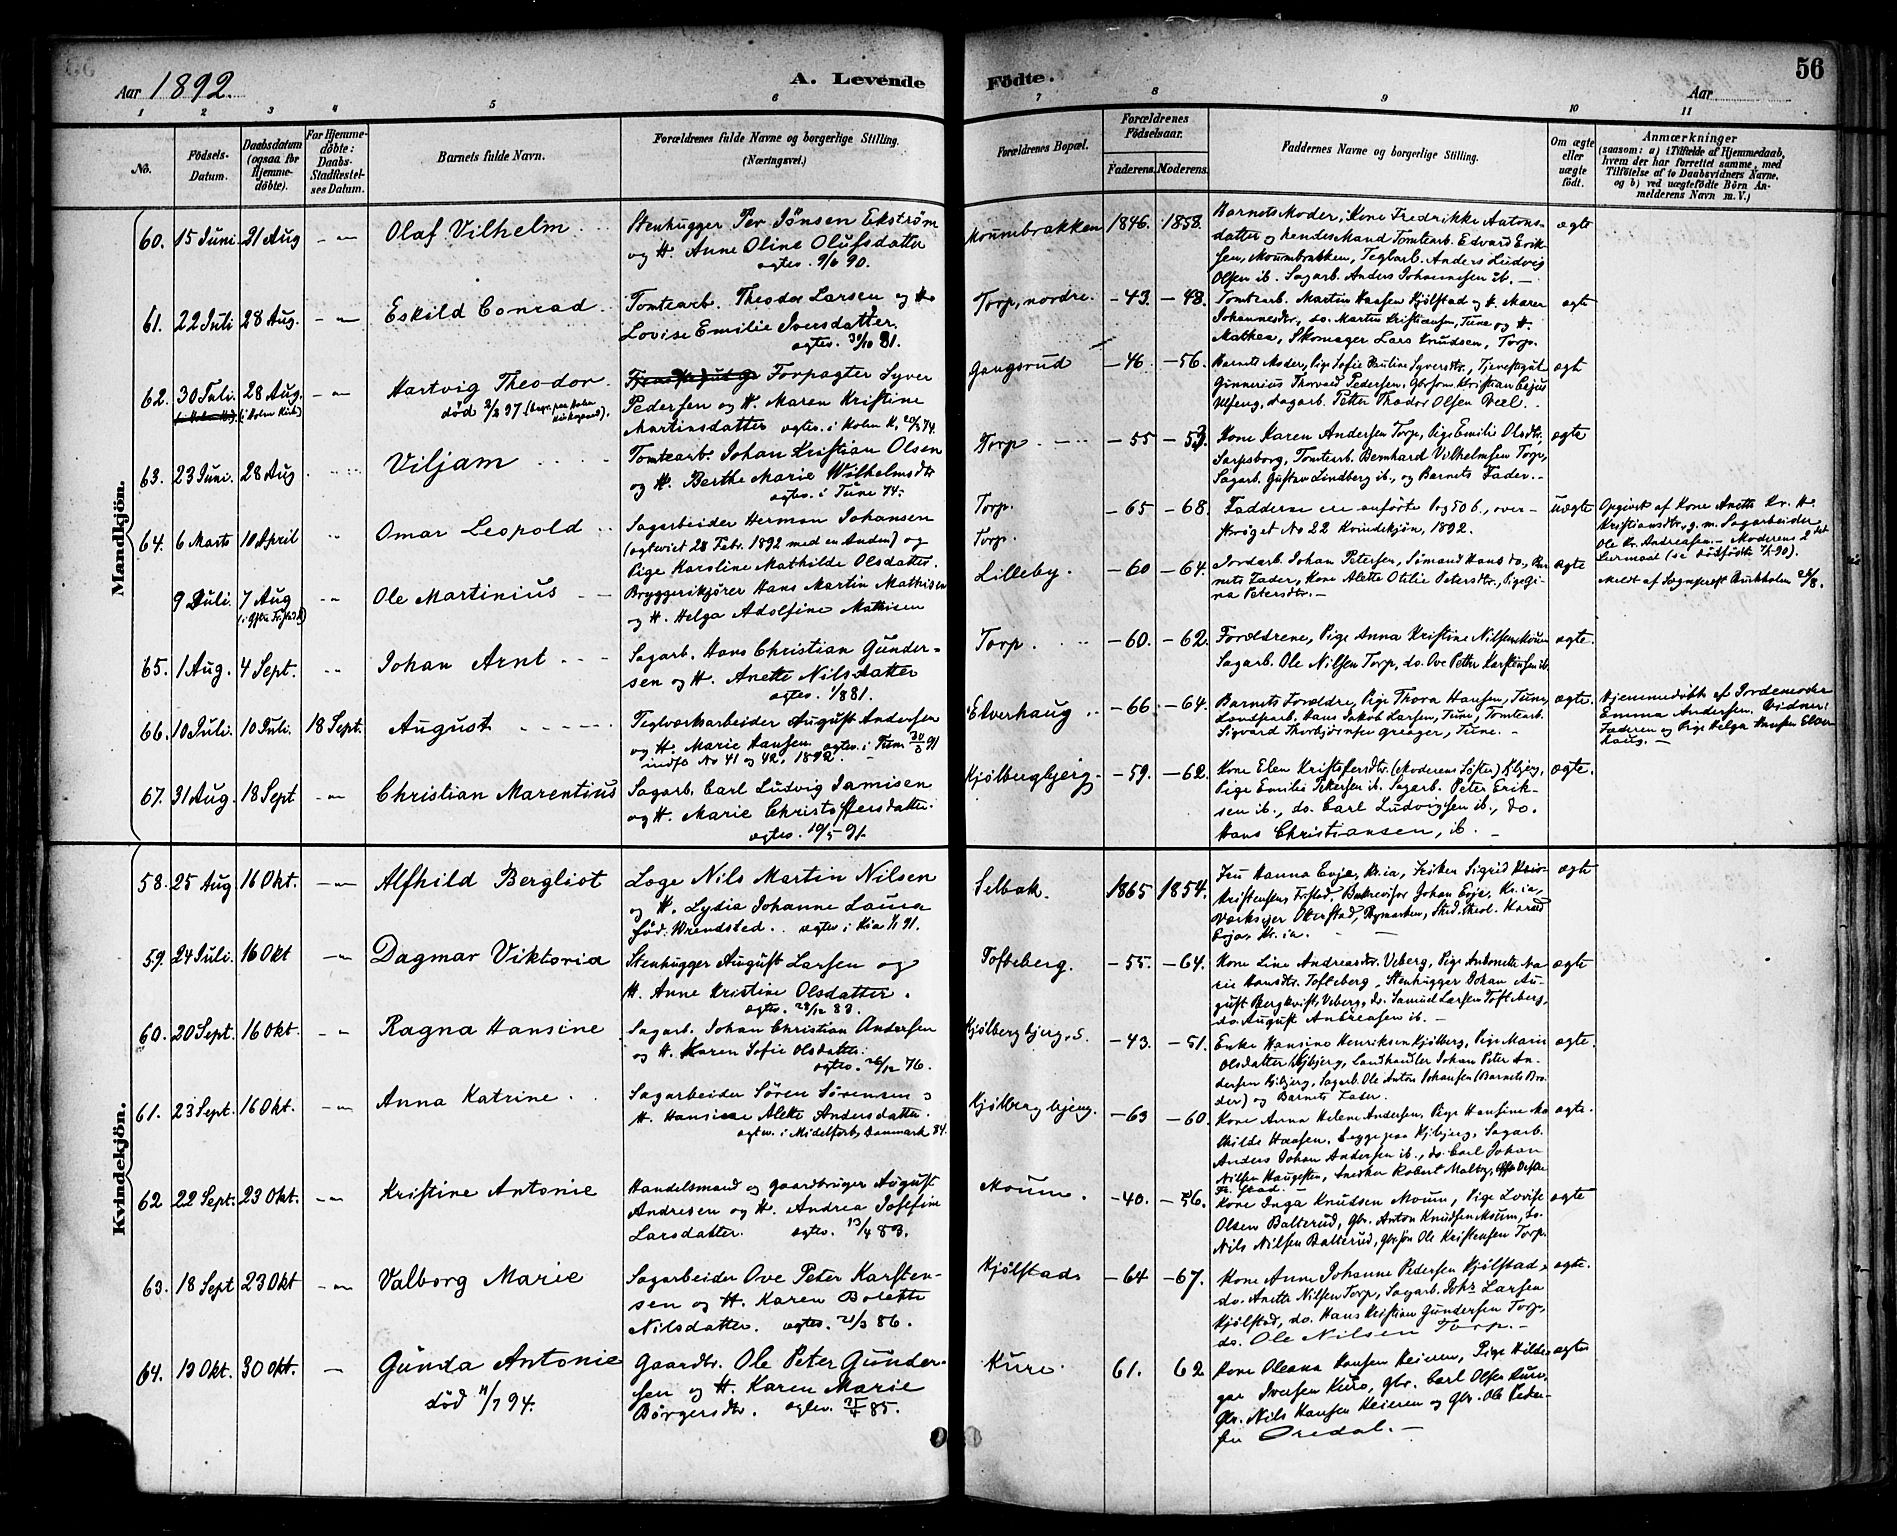 Aar 1892. A. Levende Födte. Aar 56
1 2 3 4 5 6 7 8 9 10 11
No.
Födsels-
Datum.
Daabsdatum
(ogsaa for
Hjemme-
döbte).
For Hjemme-
döbte:
Daabs-
Stadfestel-
ses Datum.
Barnets fulde Navn.
Forældrenes fulde Navne og borgerlige Stilling.
(Næringsvei.)
Forældrenes Bopæl.
Forældrenes
Födselsaar.
Faderens. Moderens.
Faddernes Navne og borgerlige Stilling.
Om ægte
eller
uægte
födt.
Anmærkninger
(saasom: a) i Tilfælde af Hjemmedaab,
hvem der har forrettet samme, med
Tilföielse af to Daabsvidners Navne.
og b) ved uægtefödte Börn An-
melderens Navn m. V.)
Mandkjön.
60. 15 Juni 21 Aug Olaf Vilhelm
Stenhugger Per Jönsen Ekström
og H. Anne Oline Olufsdatter
ægtev. 9/6 90.
Moumbrakken 1846. 1858.
Barnets Moder, Kone Fredrikke Antons-
datter og hendes Mand Tomtearb. Edvard Erik-
sen, Moumbrakken, Teglarb. Anders Ludvig
Olsen ib. Sagarb. Anders Johannesen ib. —
ægte
61. 22 Juli 28 Aug. Eskild Conrad
Tomtearb. Theodor Larsen og H.
Lovise Emilie Iversdatter
ægtev. 30/10 81.
Torp, nordre. — 43. — 48.
Tomtearb. Martin Hansen Kjölstad og H. Maren
Johannesdtr., do. Martin Kristiansen, Tune og H.
Mathea, Skomager Lars Knudsen, Torp.
ægte
62. 30 Juli. 28 Aug. (i Holm Kirke) Hartvig Theodor.
död 2/3 97
Forpagter Syver
Pedersen og H. Maren Kristine
Martinsdatter ægtev. i Holm K.
Gangsrud — 46 — 56.
Barnets Moder, Pige Sofie Pauline Syversdtr., Tjenestegut
Gunnerius Thorvald Pedersen, Kristian
Sagarb. Petter Theodor Olsen
ægte
63. 23 Juni. 28 Aug Viljam
Tomtearb. Johan Kristian Olsen
og H. Berthe Marie Wilhelmsdtr
ægtev. i Tune 74.
Torp — 55 — 53.
Kone Karen Andersen Torp, Pige Emilie Olsdtr.
Sarpsborg, Tomtearb. Bernhard Vilhelmsen Torp,
Sagarb. Gustav Lindberg ib., og Barnets Fader.
ægte
64. 6 Marts 10 April Omar Leopold
Sagarbeider Herman Johansen
(ægteviet 28 Febr. 1892 med en Anden) og
Pige Karoline Mathilde Olsdatter.
Torp. Torp. — 65 — 68.
Fadderne ere anförte Pag 50 b., over-
ströget No 22 Kvindekjön, 1892.
uægte
Opgivet af Kone Anette Kr. H.
Kristiansdtr., g. m. Sagarbeider
Ole Kr. Andreasen. — Moderens 2det
Leiermaal
9 Juli. 7 Aug Ole Martinius
Bryggerikjörer Hans Martin Mathisen
og H. Helga Adolfine Mathisen
Lilleby. — 60 — 64.
Jordarb. Johan Petersen, Sömand Hans do., Bar-
nets Fader, Kone Alette Otilie Petersdtr., Pige Gi-
na Petersdtr. —
ægte
Meldt af Sogneprest Burkholm
65. 1 Aug. 4 Sept. Johan Arnt
Sagarb. Hans Christian Gunder-
sen og H. Anette Nilsdatter
ægtev. 1/8 81.
Torp. — 60. — 62.
Forældrene, Pige Anna Kristine Nilsen Moum
Sagarb. Ole Nilsen Torp, do. Ove Peter Karstensen ib.
ægte.
66. 10 Juli. 10 Juli. 18 Sept. August
Teglværksarbeider August Andersen
og H. Marie Hansen ægtev. i Tune
indfö No 41 og 42, 1892.
Elverhaug — 66 — 64.
Barnets Forældre, Pige Thora Hansen, Tune,
Landsarb. Hans Jakob Larsen, Tune, Tomtearb.
Sigvard Thorbjörnsen Greager, Tune. —
ægte.
Hjemmedöbt af Jordemoder
Emma Andersen. Vidner:
Faderen og Pige Helga Hansen Elver-
haug. —
67. 31 Aug. 18 Sept Christian Marentius
Sagarb. Carl Ludvig Jamisen
og H. Marie Christoffersdatter.
ægtev. 10/5 91.
Kjölbergbjerg. — 59. — 62.
Kone Elen Kristofersdtr. (Moderens Söster) Kbjerg,
Pige Emilie ib. Sagarb. Peter Erik-
sen ib., do. Carl Ludvigsen ib., do.
Hans Christiansen, ib. —
ægte.
Kvindekjön.
58. 25 Aug 16 Okt. Alfhild Bergliot
Læge Nils Martin Nilsen
og H. Lydia Johanne Laura
föd. Wrendsted. ægtev. i Kia
Selbak. 1865 1854.
Fru Hanna Evje, Kr.ia, Fröken Sigrid
Kristensen, Frstad. Bokrevisor Johan Evje, Kr.ia,
Stud. theol. Harald
Evje, Kr.ia. —
ægte
59. 24 Juli. 16 Okt Dagmar Viktoria
Stenhugger August Larsen og
H. Anne Kristine Olsdatter.
ægtev. 28/12 83.
Tofteberg. — 55. — 64.
Kone Line Andreasdtr. Veberg, Pige Antonette Ma-
rie Hansdtr. Tofteberg, Stenhugger Johan Au-
gust Bergkvist, Veberg, do. Samuel Larsen Tofteberg,
do. August Andreasen ib. —
ægte
60. 20 Sept. 16 Okt. Ragna Hansine
Sagarb. Johan Christian Andersen
og H. Karen Sofie Olsdatter.
ægtev. 26/12 76.
Kjölbergbjerg, S. — 43. — 51.
Enke Hansine Henriksen Kjölberg, Pige Marie
Olsdatter Kjbjerg, Landhandler Johan Peter An-
dersen Kjbjerg, Sagarb. Ole Anton Johansen (Barnets Bro-
der) og Barnets Fader.
ægte.
61. 23 Sept. 16 Okt. Anna Katrine.
Sagarbeider Sören Sörensen og
H. Hansine Alette Andersdatter.
ægtev. i Midelfart, Danmark 84.
Kjölbergbjerg. — 63 — 60.
Kone Anna Helene Andersen, Pige Hansine Ma-
thilde Hansen, begge paa Kjbjerg, Sagarb.
Anders Johan Andersen ib., do. Carl Johan
Nilsen Haugsten, Snedker Robert Malby,
Fr.stad. —
ægte.
62 22 Sept. 23 Okt. Kristine Antonie
Handelsmand og Gaardbruger August
Andresen og H. Andrea Josefine
Larsdatter. ægtev. 13/4 83.
Moum. — 40. — 56.
Kone Inga Knudsen Moum, Pige Lovise
Olsen Balterud, Gbr. Anton Knudsen Moum, do.
Nils Nilsen Balterud, Gbrsön Ole Kristensen Torp.
ægte
63. 18 Sept 23 Okt Valborg Marie
Sagarbeider Ove Peter Karsten-
sen og H. Karen Bolette
Nilsdatter. ægtev. 21/3 86.
Kjölstad — 64 — 67.
Kone Anne Johanne Pedersen Kjölstad,
do. Anette Nilsen Torp, Sagarb. Johs Larsen
Kjölstad, do. Hans Kristian Gundersen Torp,
do. Ole Nilsen Torp. —
ægte.
64. 13 Okt. 30 Okt. Gunda Antonie
död 11/7 94.
Gaardbr. Ole Peter Gunder-
sen og H. Karen Marie
Börgersdtr. ægtev. 85.
Kure. 61. 62
Kone Oleana Hansen Heieren, Pige Hilde-
gar Iversen Kure, Gbr. Carl Olsen Kure,
Gbr. Nils Hansen Heieren og Gbr. Ole Peder-
sen Öredal. —
ægte